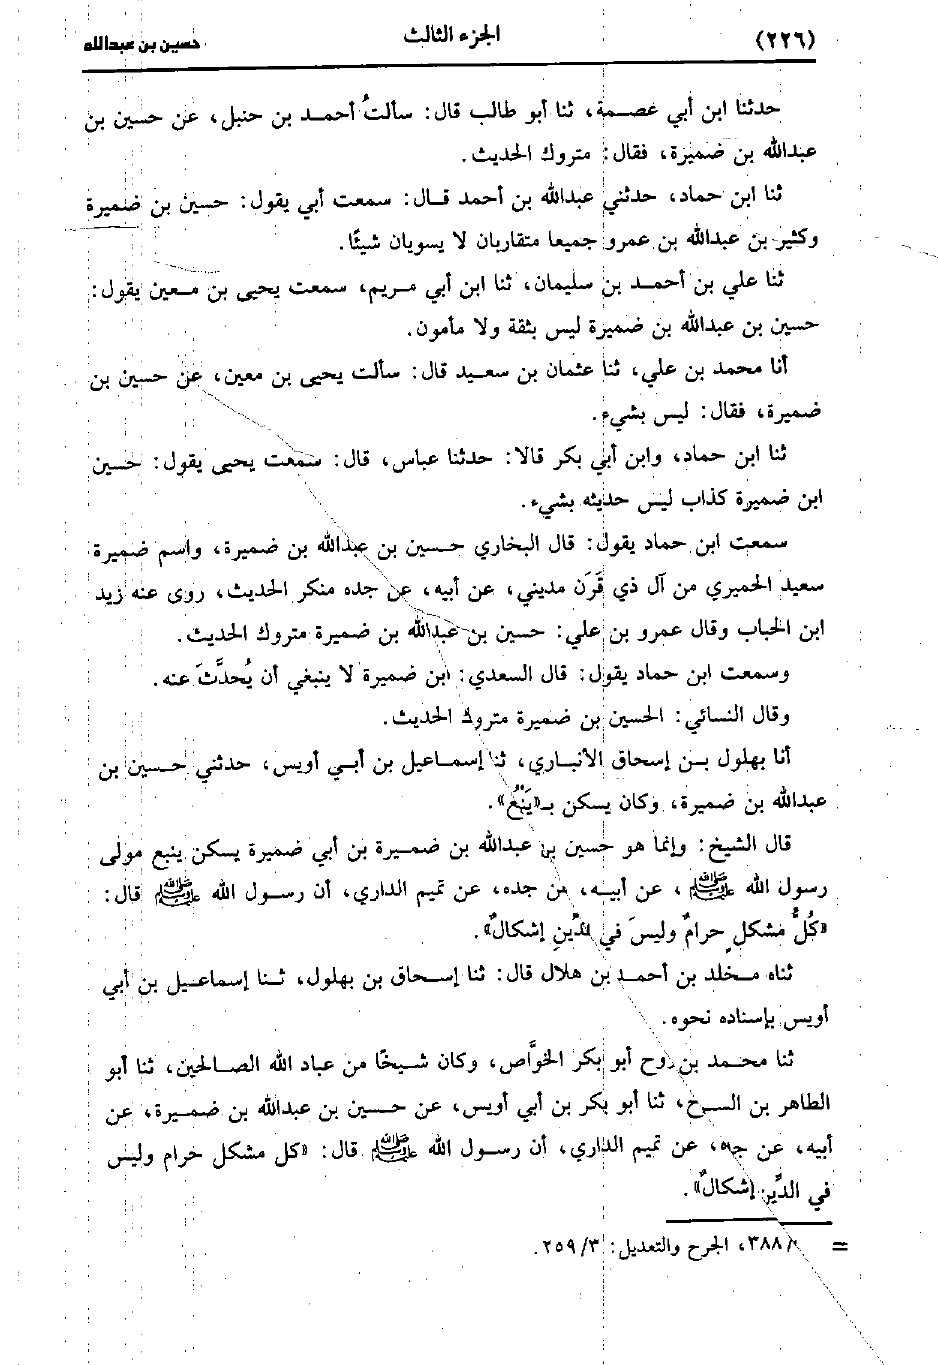 (٢٢٦) الجزء الثالث حسين بن عبدالله
حدثنا ابن أبي عصمة، ثنا أبو طالب قال: سألتُ أحمد بن حنبل، عن حسين بن
عبدالله بن ضميرة، فقال: متروك الحديث.
ثنا ابن حماد، حدثني عبدالله بن أحمد قال: سمعت أبي يقول: حسين بن ضميرة
وكثير بن عبدالله بن عمرو جميعا متقاربان لا يسويان شيئًا.
ثنا علي بن أحمد بن سليمان، ثنا ابن أبي مريم، سمعت يحيى بن معين يقول:
حسين بن عبدالله بن ضميرة ليس بثقة ولا مأمون.
أنا محمد بن علي، ثنا عثمان بن سعيد قال: سألت يحيى بن معين، عن حسين بن
ضميرة، فقال: ليس بشيء.
ثنا ابن حماد، وابن أبي بكر قالا: حدثنا عباس، قال: سمعت يحيى يقول: حسين
ابن ضميرة كذاب ليس حديثه بشيء.
سمعت ابن حماد يقول: قال البخاري حسين بن عبدالله بن ضميرة، واسم ضميرة
سعيد الحميري من آل ذي قَرَن مديني، عن أبيه، عن جده منكر الحديث، روى عنه زيد
ابن الحباب وقال عمرو بن علي: حسين بن عبدالله بن ضميرة متروك الحديث.
وسمعت ابن حماد يقول: قال السعدي: ابن ضميرة لا ينبغي أن يُحدَّثَ عنه.
وقال النسائي: الحسين بن ضميرة متروك الحديث.
أنا بهلول بن إسحاق الأنباري، ثنا إسماعيل بن أبي أويس، حدثني حسين بن
عبدالله بن ضميرة، وكان يسكن بـ«يَنْبُع».
قال الشيخ: وإنما هو حسين بن عبدالله بن ضميرة بن أبي ضميرة يسكن ينبع مولى
رسول الله ﷺ، عن أبيه، عن جده، عن تميم الداري، أن رسول الله ﷺ قال:
«كُلُّ مشكلٍ حرامٌ وليسَ في الدِّينِ إشكالٌ».
ثناه مخلد بن أحمد بن هلال قال: ثنا إسحاق بن بهلول، ثنا إسماعيل بن أبي
أويس بإسناده نحوه.
ثنا محمد بن روح أبو بكر الخوَّاص، وكان شيخًا من عباد الله الصالحين، ثنا أبو
الطاهر بن السرح، ثنا أبو بكر بن أبي أويس، عن حسين بن عبدالله بن ضميرة، عن
أبيه، عن جده، عن تميم الداري، أن رسول الله ﷺ قال: «كل مشكل حرام وليس
في الدِّين إشكالٌ».
= /٣٨٨، الجرح والتعديل: ٢٥٩/٣.